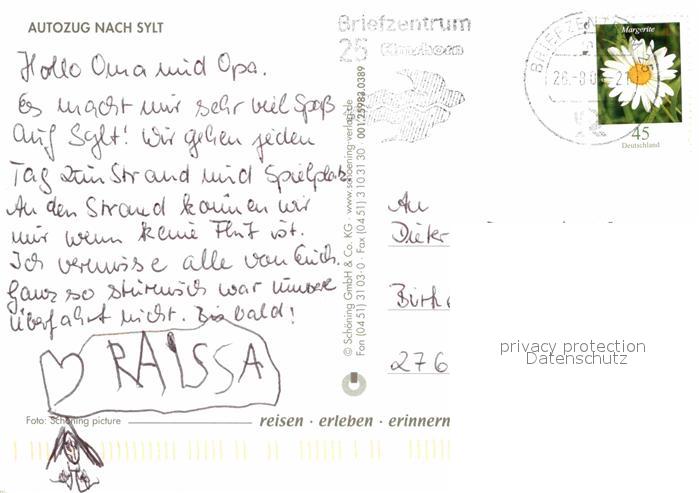 AUTOZUG NACH SYLT
Hallo Oma und Opa.
Es macht mir sehr viel Spaß
auf Sylt! Wir gehen jeden
Tag zum Strand und Spielplatz.
An den Strand können wir
nur wenn keine Flut ist.
Ich vermisse alle von Euch.
Ganz so stürmisch war unsere
Überfahrt nicht. Bis bald!
RAISSA
Foto: Schöning picture
reisen · erleben · erinnern
© Schöning GmbH & Co. KG · www.schoening-verlag.de
Fon (04 51) 3 10 3- 0 · Fax (04 51) 3 10 31 30 001.25983.0389
Briefzentrum
25
BRIEFZENT
26.-8.0
21
Margerite
45
Deutschland
An
Dieter
276
privacy protection
Datenschutz